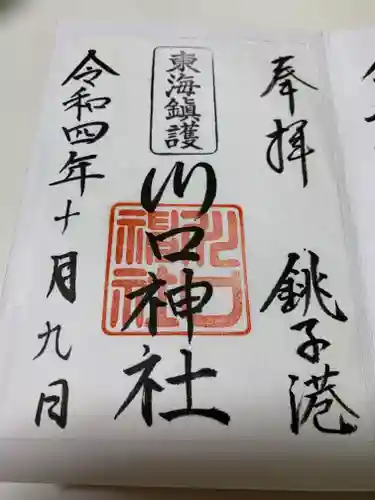 奉拝
銚子港
東海鎮護
川口神社
川口神社
令和四年十月九日